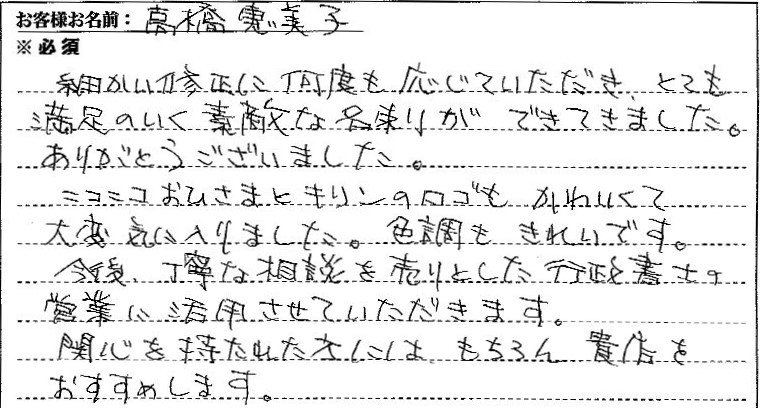 お客様お名前：高橋恵美子
※必須
細かい修正に何度も応じていただき、とても
満足のいく素敵な名刺ができてきました。
ありがとうございました。
ニコニコおひさまとキリンのロゴも かわいくて
大変気に入りました。色調もきれいです。
今後、丁寧な相談を売りとした行政書士の
営業に活用させていただきます。
関心を持たれた方には、もちろん 貴店を
おすすめします。